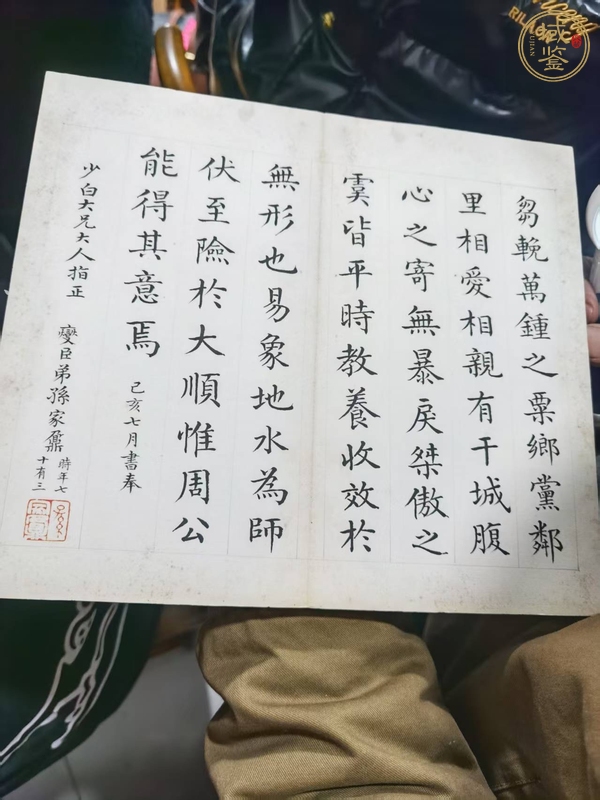 芻輓萬鍾之粟鄉黨鄰
里相愛相親有干城腹
心之寄無暴戾桀傲之
虞皆平時教養收效於
無形也易象地水為師
伏至險於大順惟周公
能得其意焉 己亥七月書奉
少白大兄大人指正
燮臣弟孫家鼐 時年七
十有三
臧鉴